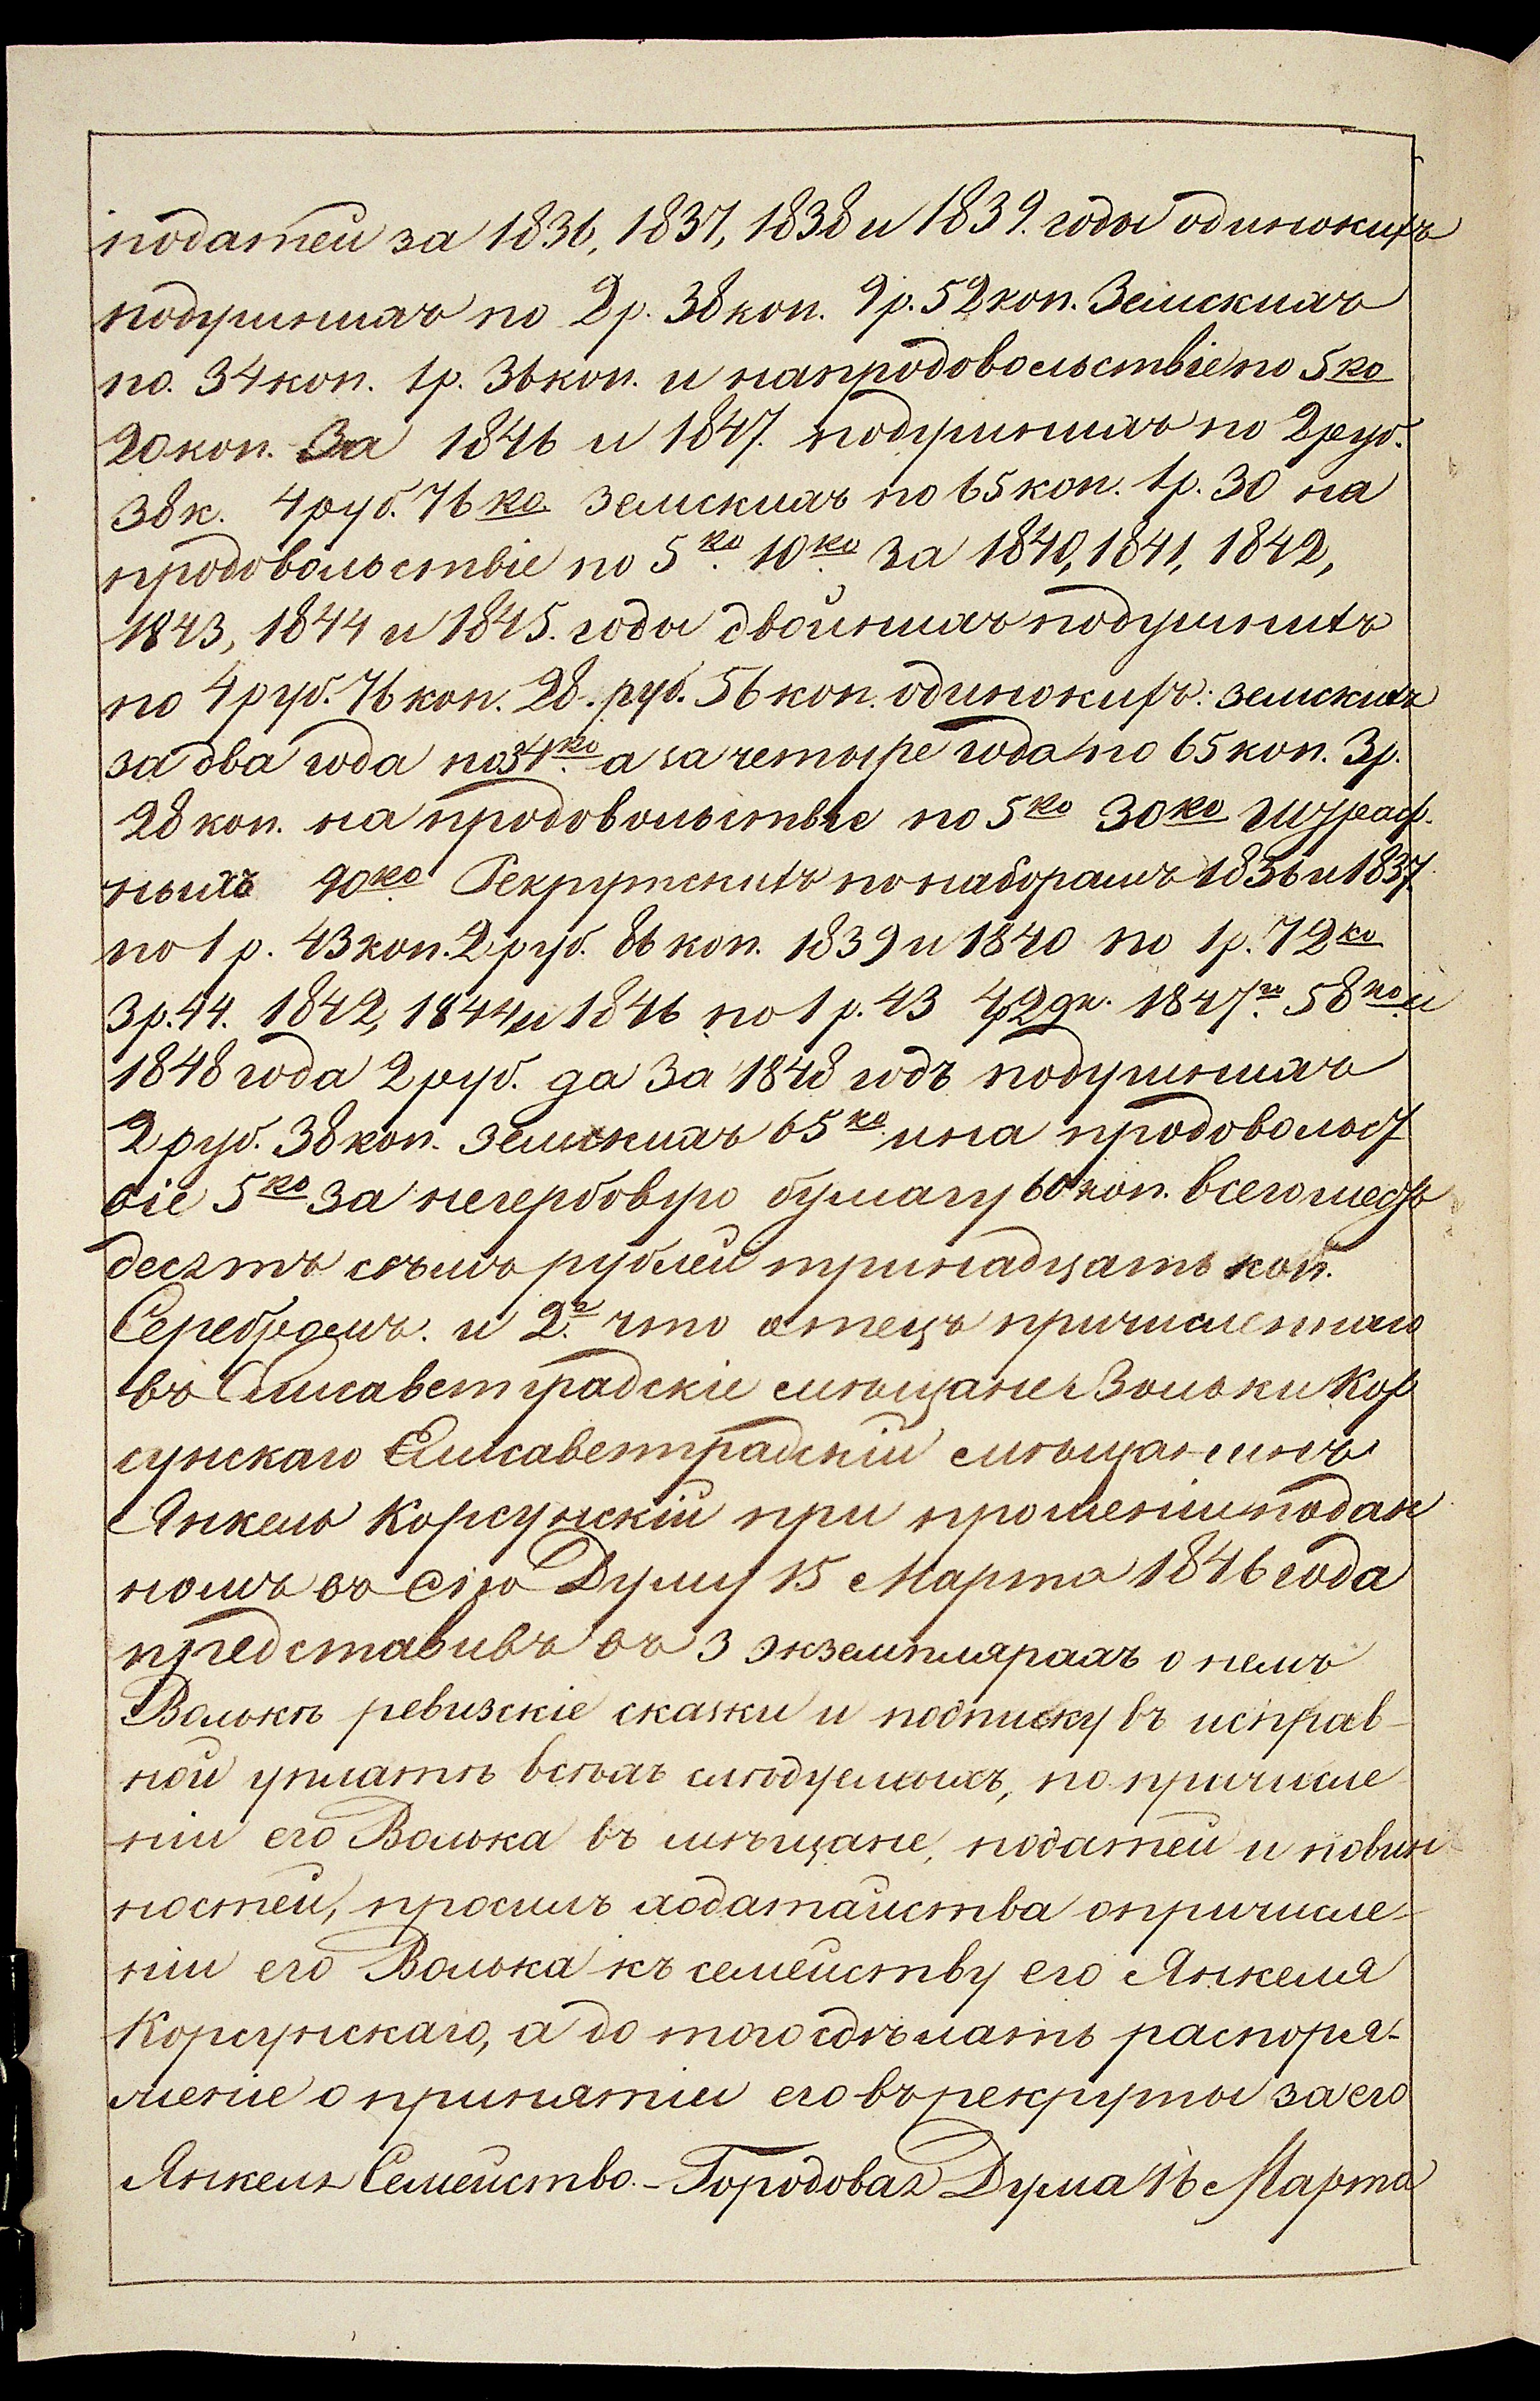 податей за 1836, 1837, 1838 и 1839. годы одинокихъ
подушныхъ по 2 р. 38 коп. 9 р. 52 коп. Земскихъ
по. 34 коп. 1 р. 36 коп. и на продовольствіе по 5 ко
20 коп. За 1846 и 1847. подушныхъ по 2 руб.
38 к. 4 руб. 76 ко. земскихъ по 65 коп. 1 р. 30 на
продовольствіе по 5 ко. 10 ко. за 1840, 1841, 1842,
1843, 1844 и 1845. годы двойныхъ подушныхъ
по 4 руб. 76 коп. 28. руб. 56 коп. одинокихъ: земскихъ
за два года по 34 ко. а за четыре года по 65 коп. 3 р.
28 коп. на продовольствіе по 5 ко 30 ко штраф-
ныхъ 90 ко. Рекрутскихъ по наборамъ 1836 и 1837.
по 1 р. 43 коп. 2 руб. 86 коп. 1839 и 1840 по 1 р. 72 ко
3 р. 44. 1842, 1844 и 1846 по 1 р. 43 4 р. 29 к. 1847 го. 58 ко. и
1848 года 2 руб. да за 1848 годъ подушныхъ
2 руб. 38 коп. земскихъ 65 ко. и на продовольст
віе 5 ко за негербовую бумагу 60 коп. всего шесть
десятъ съмь рублей тринадцать коп.
Серебромъ. и 2.е что отецъ причисленнаго
въ Елисаветградскіе мѣщане Вольки Кор
сунскаго Елисаветградскій мѣщанинъ
Янкель Корсунскій при прошеніи подан
номъ въ сію Думу 15 Марта 1846 года
представивъ въ 3 экземплярахъ о немъ
Волькѣ ревизскіе сказки и подписку въ исправ-
ной уплатѣ всѣхъ слѣдуемыхъ, по причисле
ніи его Волька въ мѣщане, податей и повин
ностей, просилъ ходатайства о причисле-
ніи его Волька къ семейству его Янкеля
Корсунскаго, а до того сдѣлать распоря-
женіе о принятіи его въ рекруты за его
Янкеля Семейство. - Городовая Дума 16 Марта